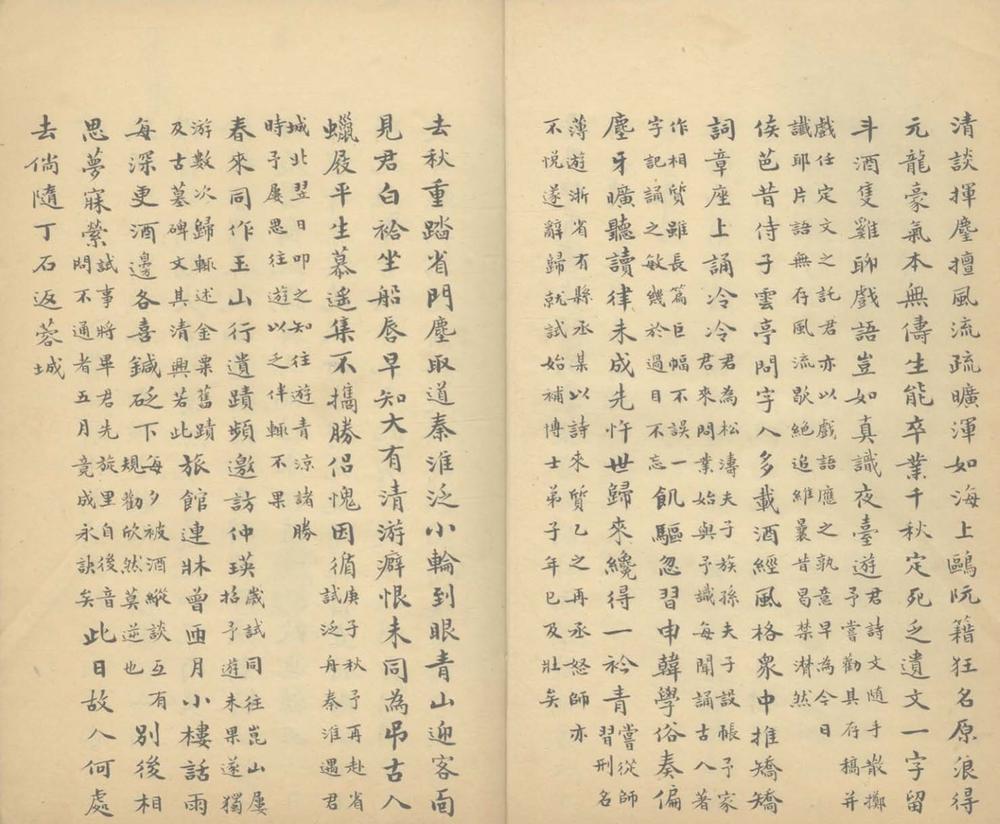 清談揮麈擅風流疏曠渾如海上鷗阮籍狂名原浪得
元龍豪氣本無儔生能卒業千秋定死乏遺文一字留
斗酒隻雞聊戲語豈如真識夜臺遊
君詩文隨手散擲
予嘗勸其存稿并
戲任定文之託君亦以戲語應之孰意早為今日
讖耶片語無存風流歇絕追維曩昔曷禁潸然
侯芭昔侍子雲亭問字人多載酒經風格眾中推矯矯
詞章座上誦泠泠
君為松濤夫子族孫夫子設帳予家
君來問業始與予識每聞誦古人著
作相質雖長篇巨幅不誤一
字記誦之敏幾於過目不忘
飢驅忽習申韓學俗奏偏
麈牙曠聽讀律未成先忤世歸來纔得一衿青
嘗從師
習刑名
薄遊浙省有縣丞某以詩來質乙之再丞怒師亦
不悅遂辭歸就試始補博士弟子年已及壯矣
去秋重踏省門塵取道秦淮泛小輪到眼青山迎客面
見君白袷坐船唇早知大有清游癖恨未同為弔古人
蠟屐平生慕遙集不攜勝侶愧因循
庚子秋予再赴省
試泛舟秦淮遇君
城北翌日叩之知往遊青涼諸勝
時予屢思往遊以之伴輒不果
春來同作玉山行遺蹟頻邀訪仲瑛
歲試同往崑山屢
招予遊未果遂獨
游數次歸輒述金粟舊蹟
及古墓碑文其清興若此
旅館連牀曾匝月小樓話雨
每深更酒邊各喜鍼砭下
每夕被酒縱談互有
規勸欣然莫逆也
別後相
思夢寐縈
試事將畢君先旋里自後音
問不通者五月竟成永訣矣
此日故人何處
去倘隨丁石返蓉城